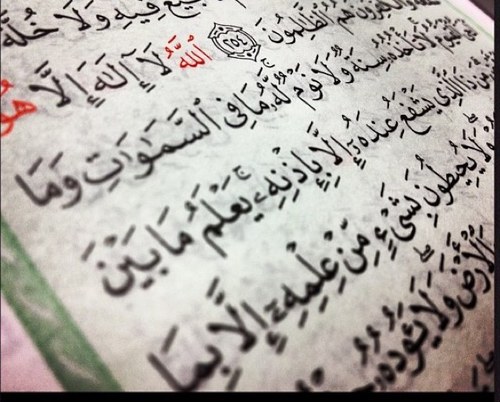 بَيْعٌ فِيهِ وَلَا خُلَّةٌ
وَٱلْكَٰفِرُونَ هُمُ ٱلظَّٰلِمُونَ ٢٥٤ ٱللَّهُ لَآ إِلَٰهَ إِلَّا هُوَ
لَا تَأْخُذُهُۥ سِنَةٌ وَلَا نَوْمٌ لَّهُۥ مَا فِى ٱلسَّمَٰوَٰتِ وَمَا
مَن ذَا ٱلَّذِى يَشْفَعُ عِندَهُۥٓ إِلَّا بِإِذْنِهِۦ يَعْلَمُ مَا بَيْنَ
وَلَا يُحِيطُونَ بِشَىْءٍ مِّنْ عِلْمِهِۦٓ إِلَّا بِمَا
ٱلْأَرْضَ وَلَا يَـُٔودُهُۥ